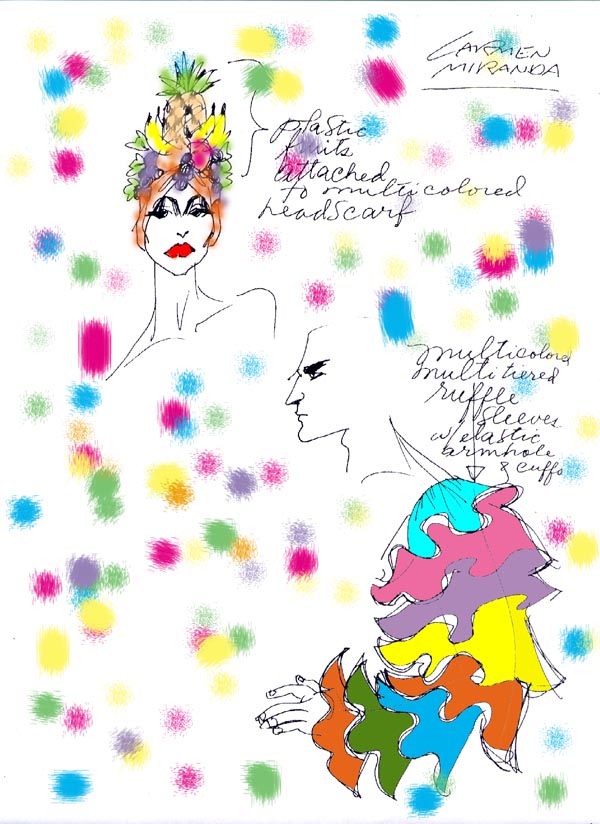 CARMEN
MIRANDA
plastic
fruits
attached
to multicolored
headscarf
multicolored
multitiered
ruffle
sleeves
w/elastic
armhole
& cuffs